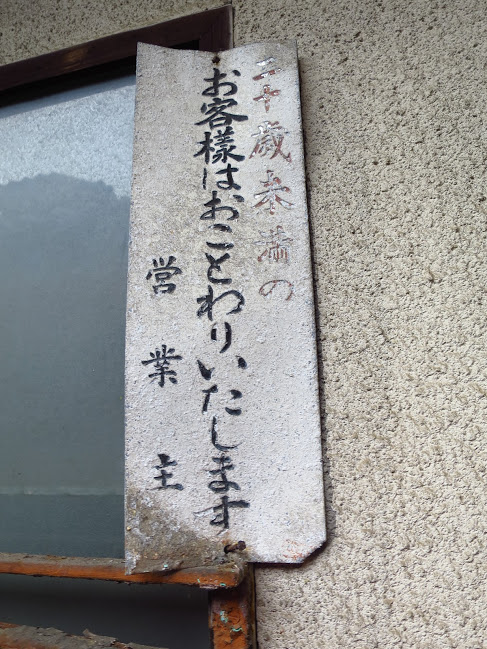 二十歳未満の
お客様はおことわりいたします
営業主